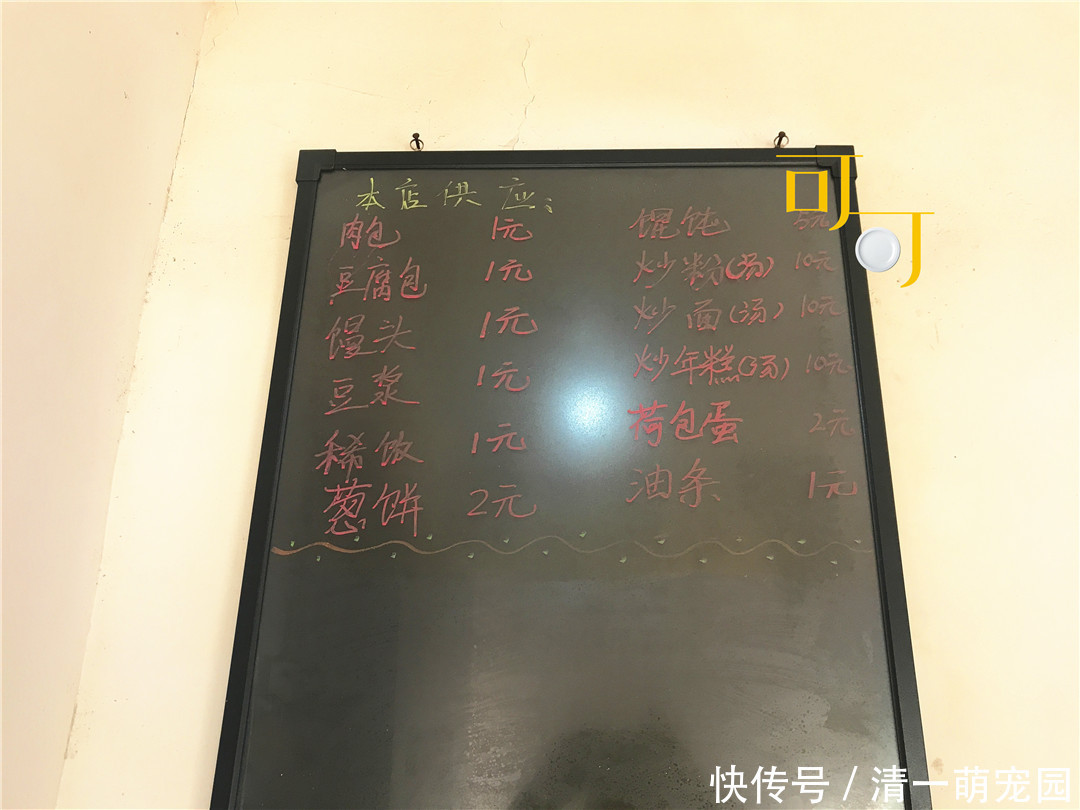 本店供应:
肉包 1元
豆腐包 1元
馒头 1元
豆浆 1元
稀饭 1元
葱饼 2元
馄饨 5元
炒粉(汤) 10元
炒面(汤) 10元
炒年糕(汤) 10元
荷包蛋 2元
油条 1元
可可
快传号 / 清一萌宠园